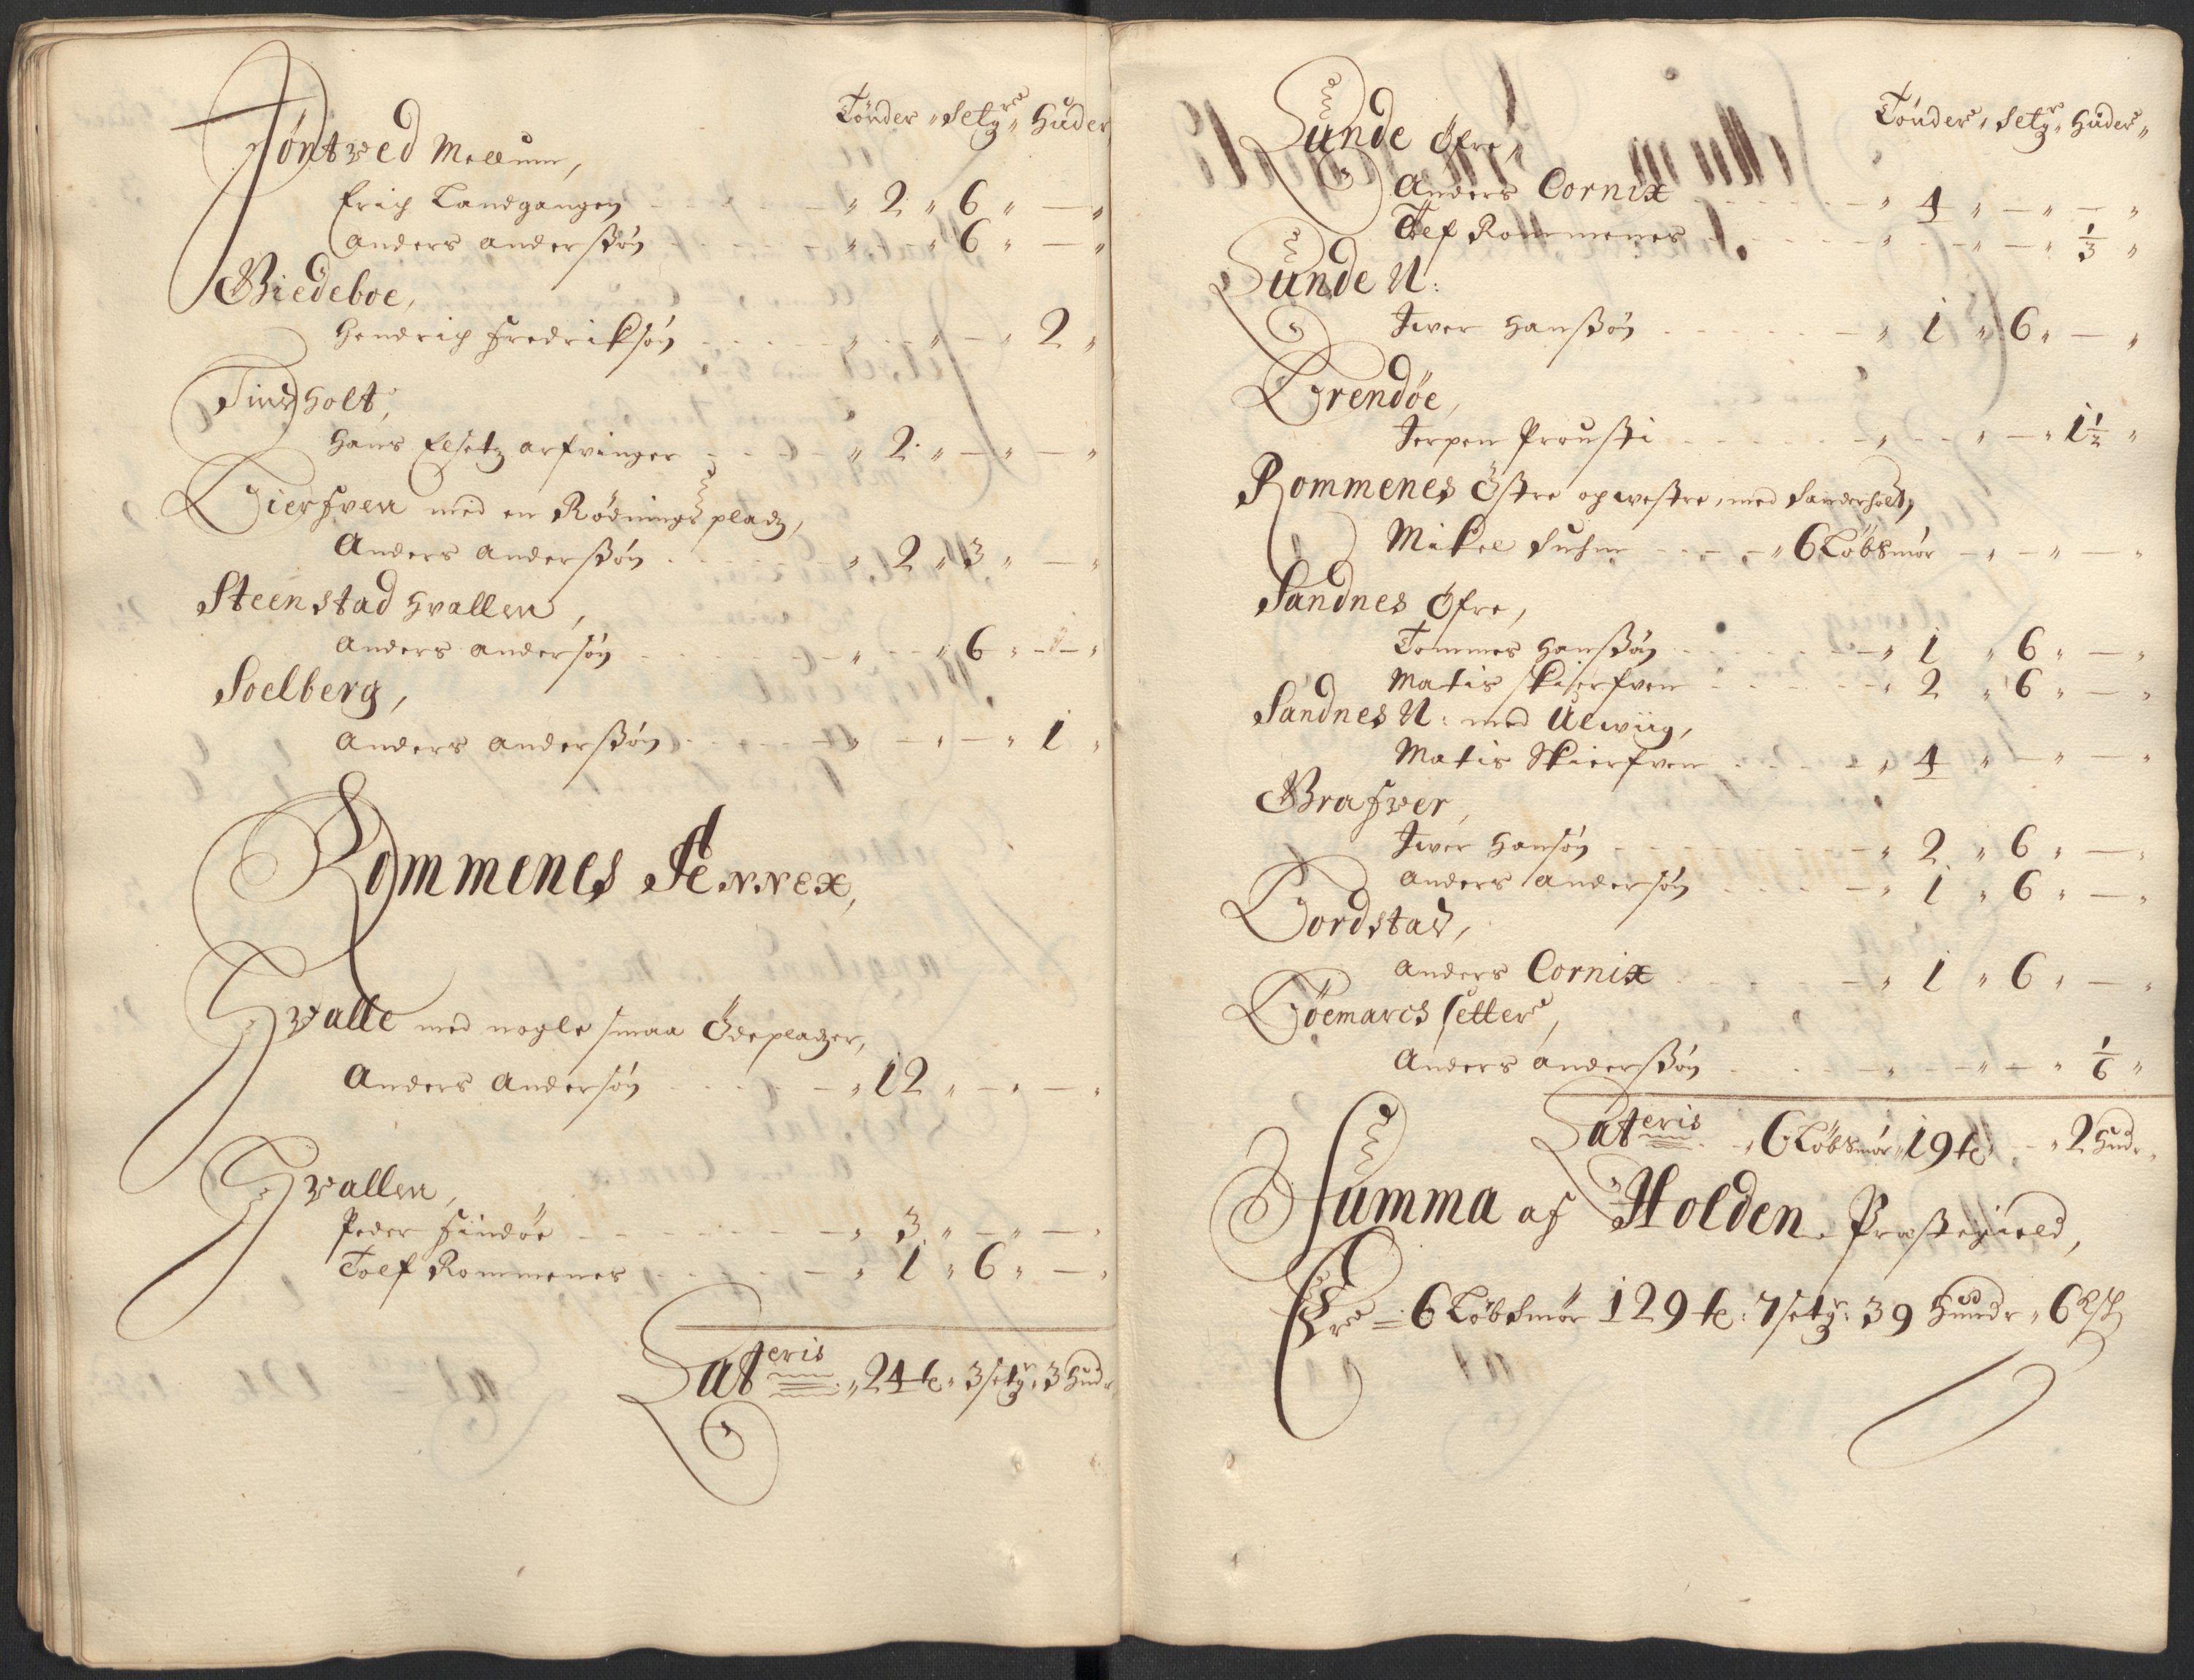 Tönder " Setgr " Huder
Töntved Mellum,
Erich Landgangen - - - - " 2 " 6 " — "
Anders Anderssøn - - - - " - " 6 " — "
Biedeboe,
Hendrich Fredriksøn - - - - " - " — " 2 "
Tindholt,
Hans Elsetz arfvinger - - - " 2 " — " — "
Kierfven med en Rödnings pladz,
Anders Anderssøn - - - - " 2 " 3 " — "
Steenstad Hvallen,
Anders Andersøn - - - - " - " 6 " — "
Soelberg,
Anders Anderssøn - - - - " — " — " 1 "
Rommenes Annex,
Hvalle med nogle smaa Ödepladzer,
Anders Andersøn - - - - " 12 " — " — "
Hvallen,
Peder Findöe - - - - " 3 " — " — "
Toelf Rommenes - - - - " 1 " 6 " — "
Lateris " 24 tr " 3 setgr " 3 Hudr
Tönder " Setgr " Huder "
Sunde Öfre,
Anders Cornix - - - - " 4 " — " — "
Toelf Rommenes - - - - " - " — " 1/3 "
Sunde N:
Iwer Hanssøn - - - - " 1 " 6 " — "
Trendöe,
Jerpen Prousti - - - - " - " — " 1 1/2 "
Rommenes Östre og westre, med Sanderholt,
Mikel Suhm - - - - " 6 Löbsmör — " — " — "
Sandnes Öfre,
Tommes Hanssøn - - - - " 1 " 6 " — "
Matis Skierfven - - - - " 2 " 6 " — "
Sandnes N: med Ulwiig,
Matis Skierfven - - - - " 4 " — " — "
Brafver,
Iwer Hansøn - - - - " 2 " 6 " — "
Anders Andersøn - - - - " 1 " 6 " — "
Bordstad,
Anders Cornix - - - - " 1 " 6 " — "
Töemarcs setter,
Anders Anderssøn - - - - " — " — " 1/6 "
Lateris - " 6 Löbsmör " 19 tr " — " 2 Hudr "
Summa af Holden Præstegield,
Er = 6 Löbsmör 129 tr: 7 setgr: 39 Hudr " 6